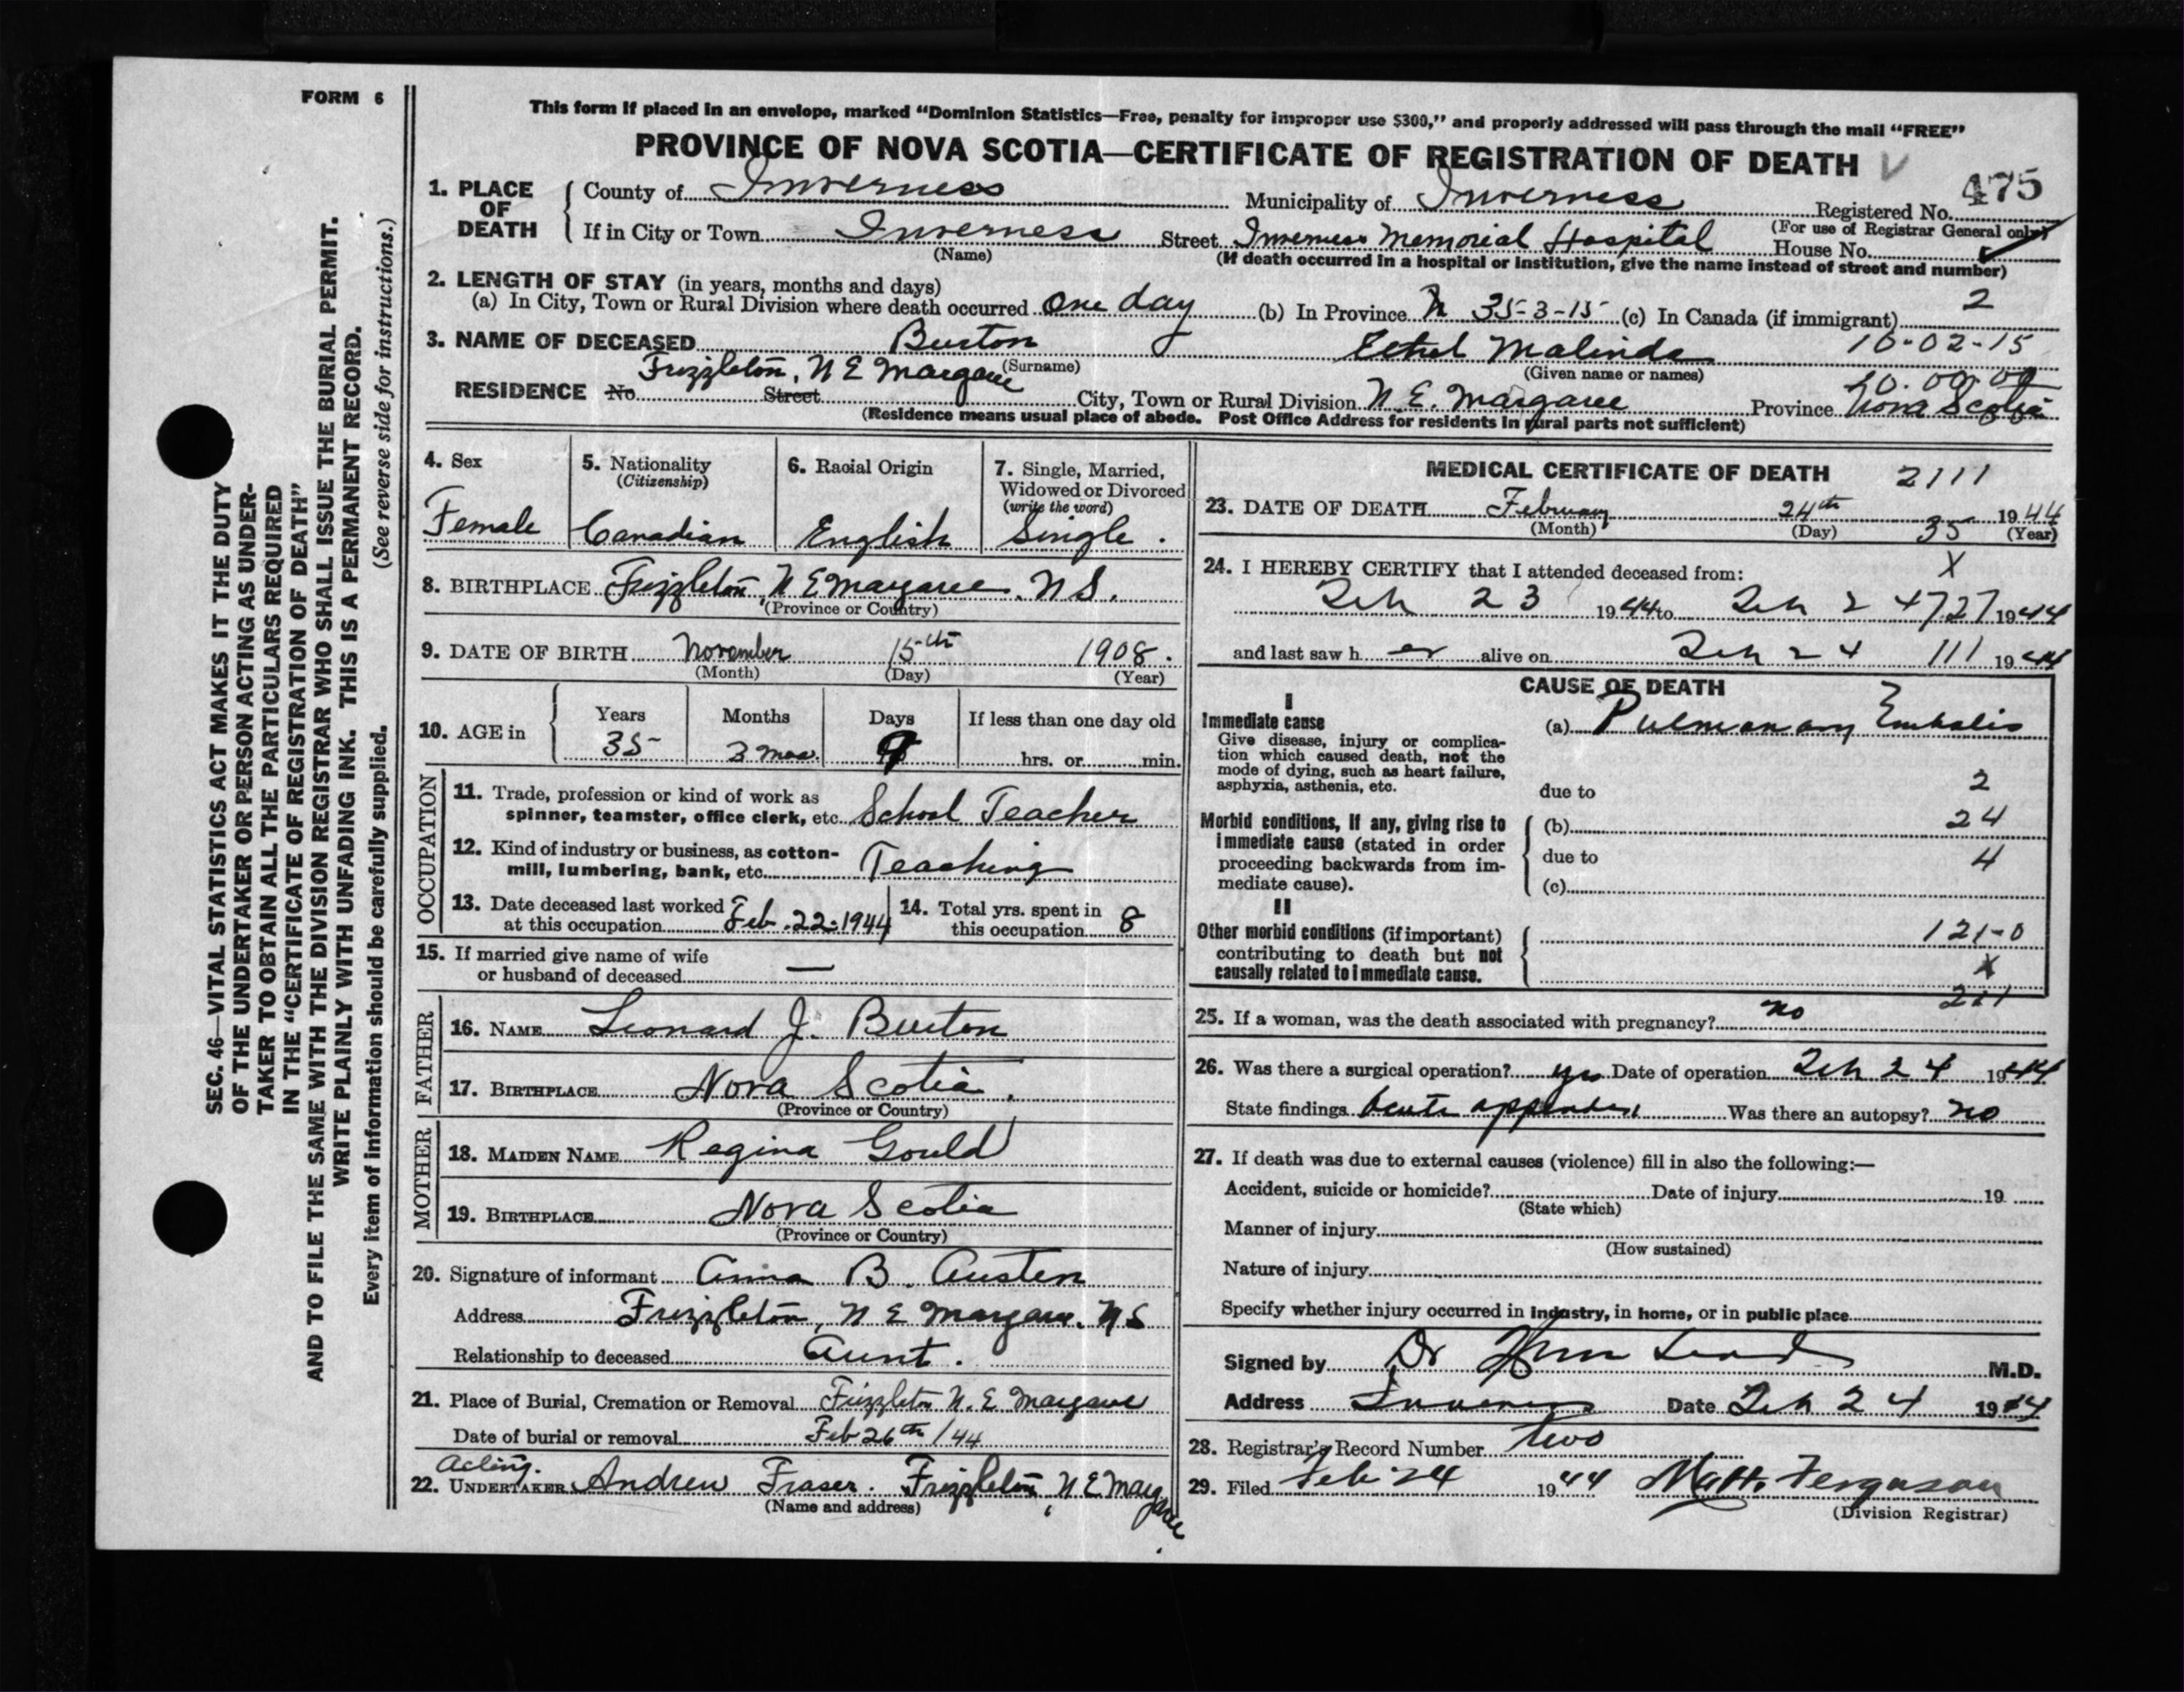 FORM 6
This form if placed in an envelope, marked "Dominion Statistics—Free, penalty for improper use $300," and properly addressed will pass through the mail "FREE"
PROVINCE OF NOVA SCOTIA—CERTIFICATE OF REGISTRATION OF DEATH
475
1. PLACE OF DEATH
County of Inverness Municipality of Inverness Registered No.
(For use of Registrar General only)
If in City or Town Inverness Street Inverness Memorial Hospital House No.
(Name) (If death occurred in a hospital or institution, give the name instead of street and number)
2. LENGTH OF STAY (in years, months and days)
(a) In City, Town or Rural Division where death occurred One day (b) In Province 35-3-15 (c) In Canada (if immigrant) 2
3. NAME OF DECEASED Burton Ethel Malinda 10-02-15
(Surname) (Given name or names)
Frizzleton, N E Margaree
RESIDENCE No Street City, Town or Rural Division N. E. Margaree Province Nova Scotia
(Residence means usual place of abode. Post Office Address for residents in rural parts not sufficient)
4. Sex
Female
5. Nationality
(Citizenship)
Canadian
6. Racial Origin
English
7. Single, Married,
Widowed or Divorced
(write the word)
Single.
8. BIRTHPLACE Frizzleton, N E Margaree. N S.
(Province or Country)
9. DATE OF BIRTH November 15th 1908.
(Month) (Day) (Year)
10. AGE in
Years Months Days If less than one day old
35 3 mos. 9 hrs. or min.
OCCUPATION
11. Trade, profession or kind of work as
spinner, teamster, office clerk, etc. School Teacher
12. Kind of industry or business, as cotton-
mill, lumbering, bank, etc. Teaching
13. Date deceased last worked
at this occupation Feb. 22-1944
14. Total yrs. spent in
this occupation 8
15. If married give name of wife
or husband of deceased —
FATHER
16. NAME Leonard J. Burton
17. BIRTHPLACE Nova Scotia.
(Province or Country)
MOTHER
18. MAIDEN NAME Regina Gould
19. BIRTHPLACE Nova Scotia
(Province or Country)
20. Signature of informant Anna B. Austen
Address Frizzleton, N E Margaree. N S
Relationship to deceased Aunt.
21. Place of Burial, Cremation or Removal Frizzleton N. E. Margaree
Date of burial or removal Feb 26th /44
Acting.
22. UNDERTAKER Andrew Fraser. Frizzleton, N E Margaree
(Name and address)
MEDICAL CERTIFICATE OF DEATH 2111
23. DATE OF DEATH February 24th 1944
(Month) (Day) 35 (Year)
X
24. I HEREBY CERTIFY that I attended deceased from:
Feb 23 1944 to Feb 24 727 1944
and last saw h er alive on Feb 24 111 1944
CAUSE OF DEATH
I
Immediate cause
Give disease, injury or complica-
tion which caused death, not the
mode of dying, such as heart failure,
asphyxia, asthenia, etc.
(a) Pulmonary Embolis
due to 2
Morbid conditions, if any, giving rise to
immediate cause (stated in order
proceeding backwards from im-
mediate cause).
(b) 24
due to 4
(c)
II
Other morbid conditions (if important)
contributing to death but not
causally related to immediate cause.
121-0
X
25. If a woman, was the death associated with pregnancy? no
26. Was there a surgical operation? yes Date of operation Feb 24 1944
State findings Acute Was there an autopsy? no
27. If death was due to external causes (violence) fill in also the following:—
Accident, suicide or homicide? Date of injury 19
(State which)
Manner of injury
(How sustained)
Nature of injury
Specify whether injury occurred in industry, in home, or in public place
Signed by Dr M.D.
Address Inverness Date Feb 24 1944
28. Registrar's Record Number two
29. Filed Feb 24 1944 Matt. Ferguson
(Division Registrar)
SEC. 46—VITAL STATISTICS ACT MAKES IT THE DUTY
OF THE UNDERTAKER OR PERSON ACTING AS UNDER-
TAKER TO OBTAIN ALL THE PARTICULARS REQUIRED
IN THE "CERTIFICATE OF REGISTRATION OF DEATH"
AND TO FILE THE SAME WITH THE DIVISION REGISTRAR WHO SHALL ISSUE THE BURIAL PERMIT.
WRITE PLAINLY WITH UNFADING INK. THIS IS A PERMANENT RECORD.
Every item of information should be carefully supplied. (See reverse side for instructions.)